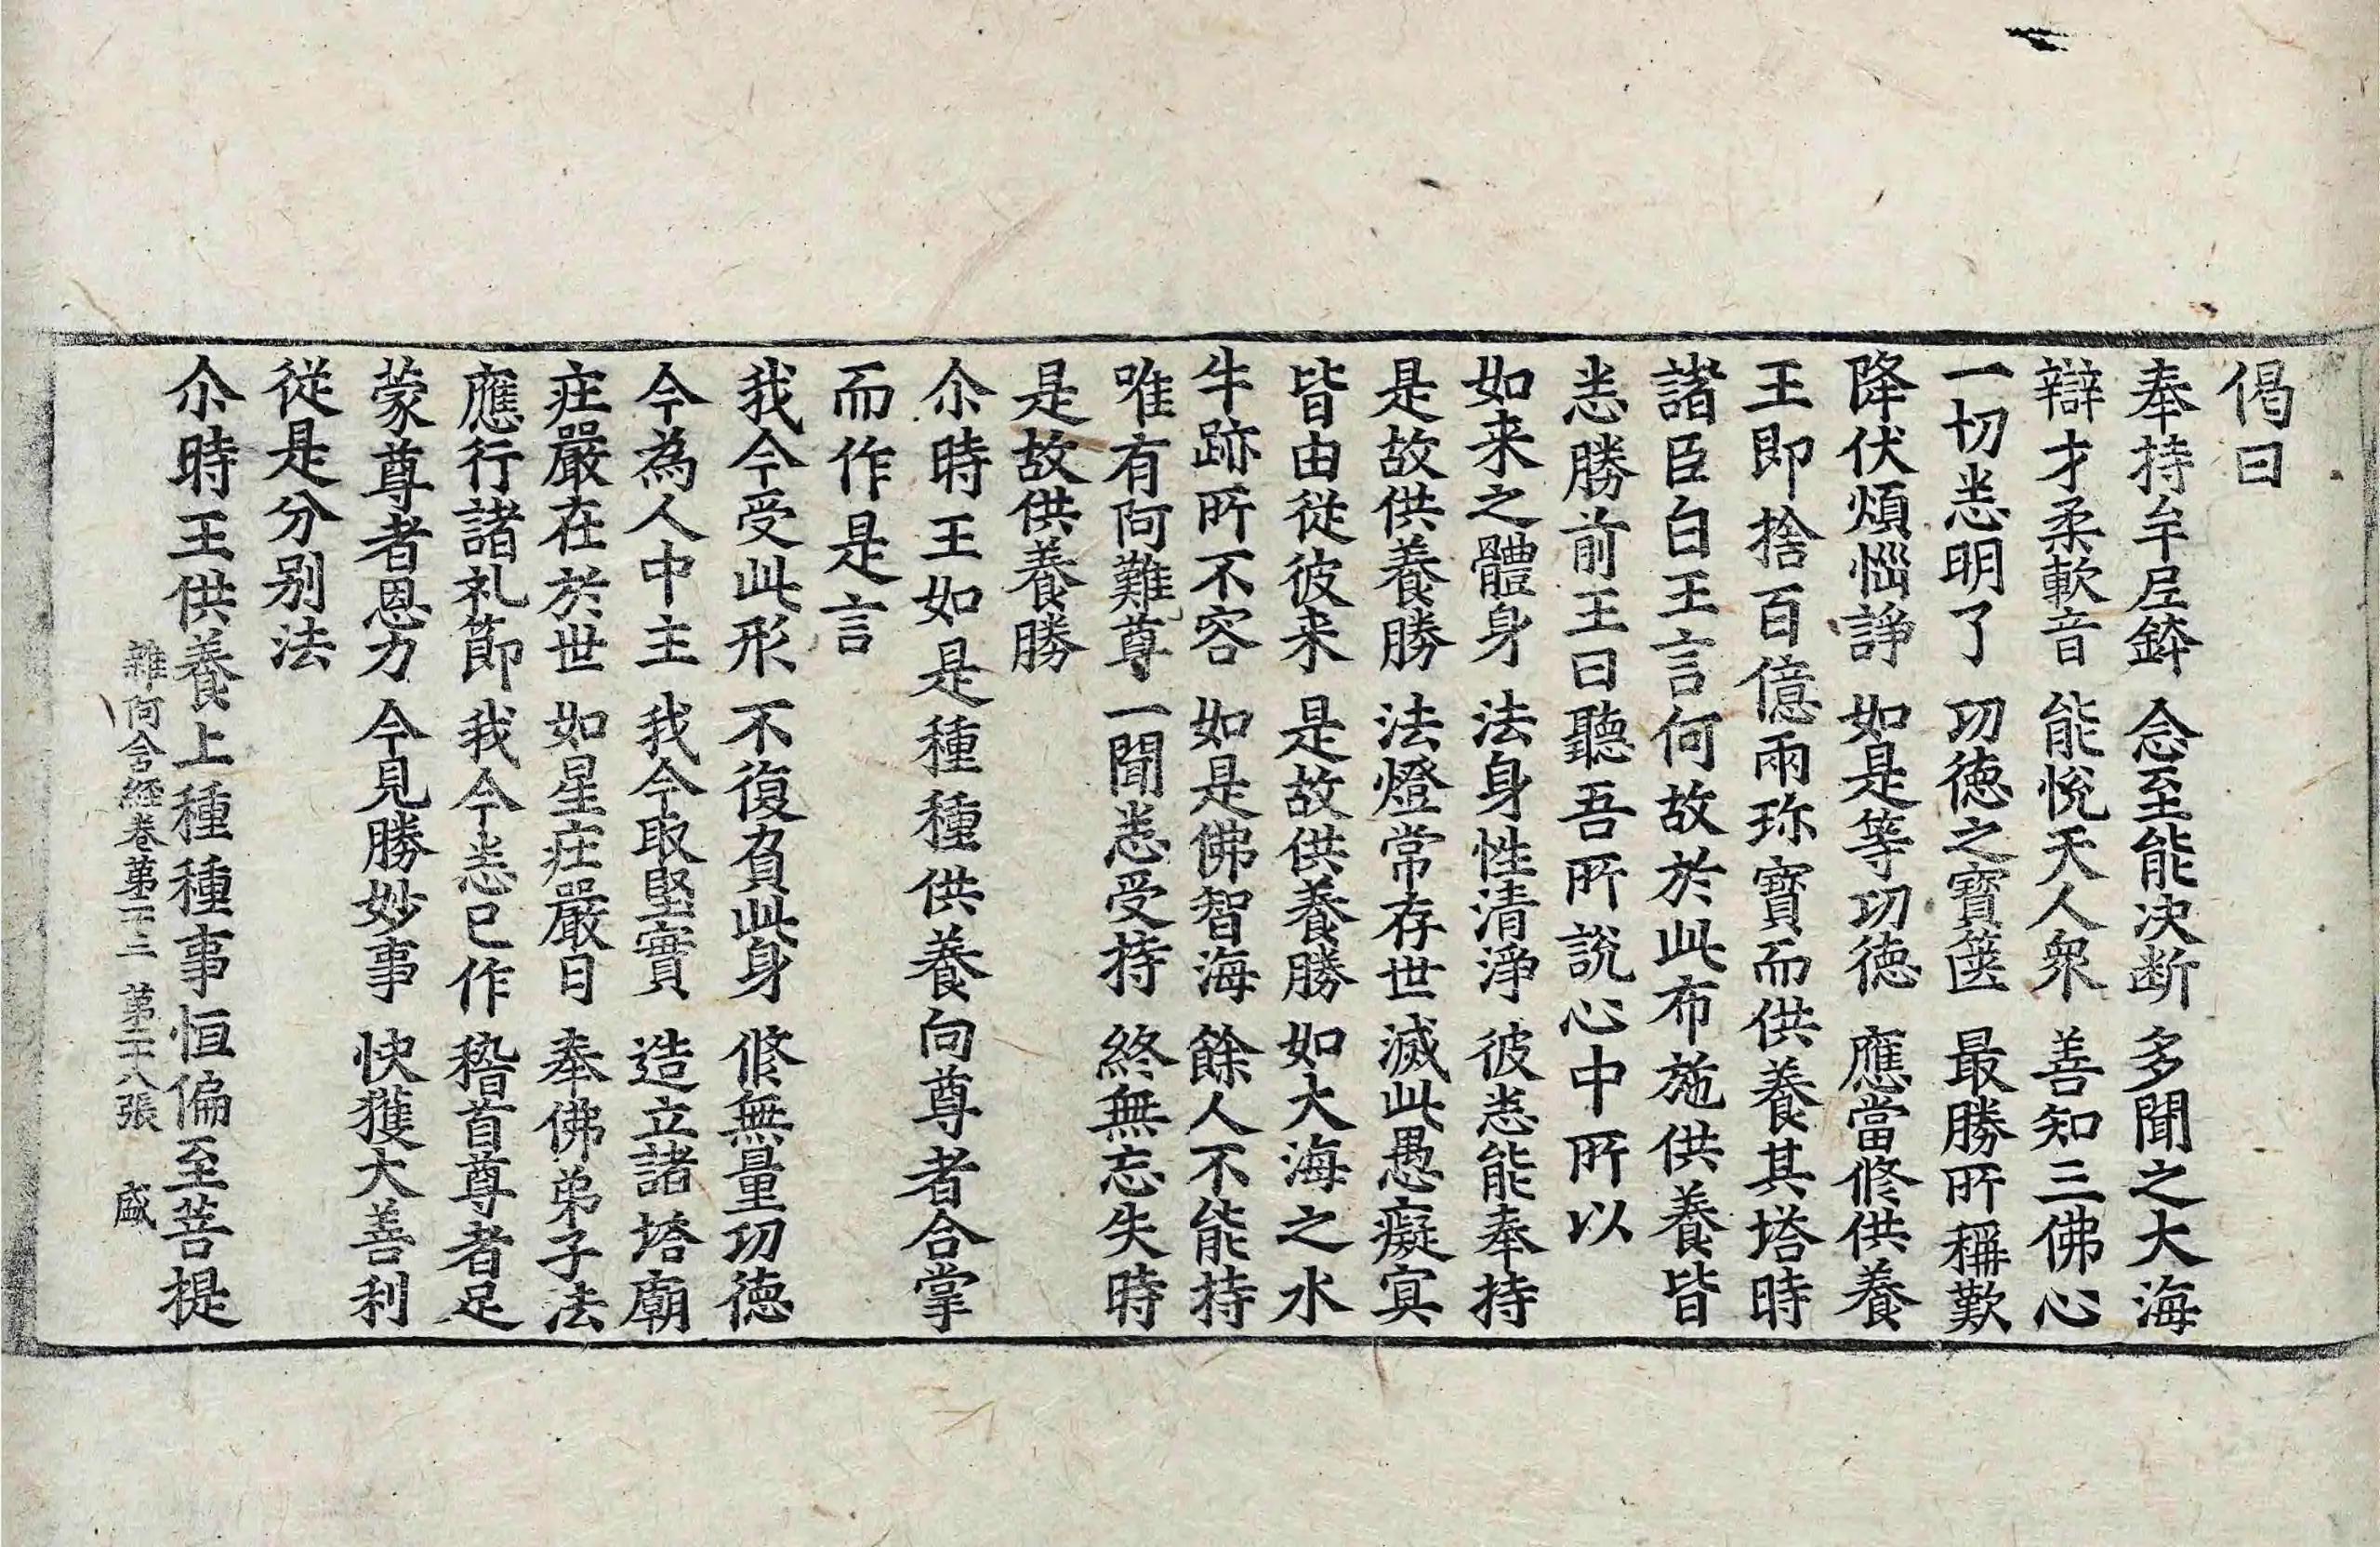 偈曰
奉持牟尼鉢　念至能決断　多聞之大海
辯才柔軟音　能悅天人衆　善知三佛心
一切悉明了　功徳之寶篋　最勝所稱歎
降伏煩惱諍　如是等功徳　應當修供養
王即捨百億兩珎寶而供養其塔時
諸臣白王言何故於此布施供養皆
悉勝前王曰聽吾所說心中所以
如来之體身　法身性清淨　彼悉能奉持
是故供養勝　法燈常存世　滅此愚癡冥
皆由從彼来　是故供養勝　如大海之水
牛跡所不容　如是佛智海　餘人不能持
唯有阿難尊　一聞悉受持　終無忘失時
是故供養勝
尒時王如是種種供養向尊者合掌
而作是言
我今受此形　不復負此身　修無量功徳
今為人中主　我今取堅實　造立諸塔廟
庄嚴在於世　如星庄嚴日　奉佛弟子法
應行諸礼節　我今悉已作　稽首尊者足
蒙尊者恩力　今見勝妙事　快獲大善利
從是分别法
尒時王供養上種種事恒偏至菩提
雜阿含経巻第二十三　第二十八張　盛